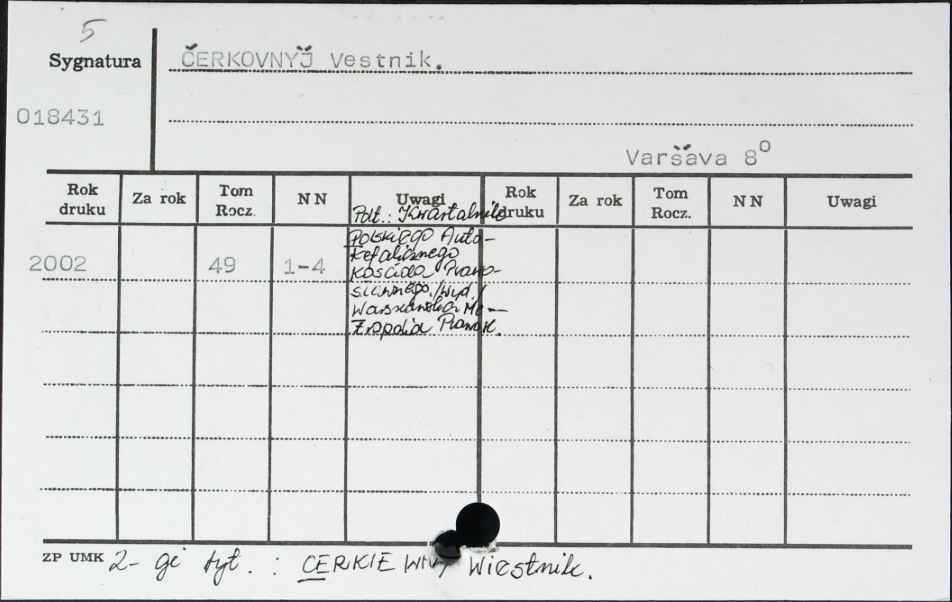 5
Sygnatura
ČERKOVNYJ̌ Vestnik.
018431
Varšava 8°
Rok druku Za rok Tom Rocz. N N Uwagi Rok druku Za rok Tom Rocz. N N Uwagi
Pdt.: Kwartalnik
Polskiego Auto-
kefalicznego
2002 49 1-4
Kościoła Prawo-
sławnego./Wyd./
Warszawska Me-
tropolia Prawosł.
ZP UMK 2-gi tyt. : CERKIEWNY Wiestnik.